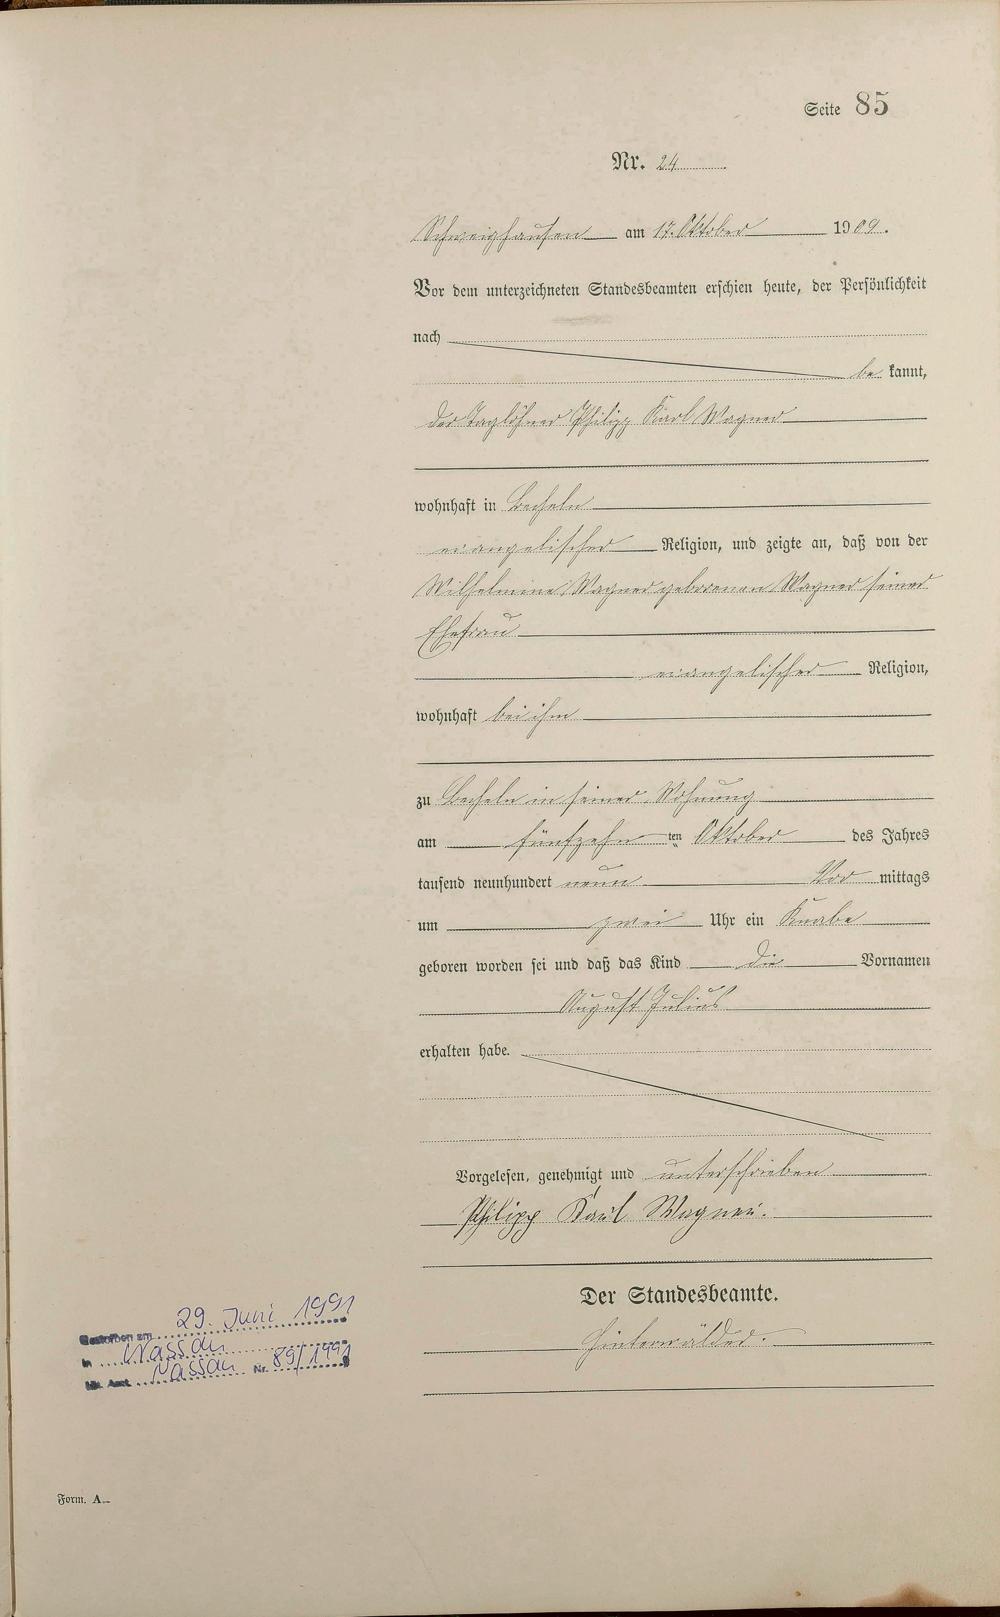 Seite 85
Nr. 24
Schweighausen am 17. Oktober 1909.
Vor dem unterzeichneten Standesbeamten erschien heute, der Persönlichkeit
nach
be kannt,
der Taglöhner Philipp Karl Wagner
wohnhaft in Becheln
evangelischer Religion, und zeigte an, daß von der
Wilhelmine Wagner geborenen Wagner seiner
Ehefrau
evangelischer Religion,
wohnhaft bei ihm
zu Becheln in seiner Wohnung
am fünfzehn ten Oktober des Jahres
tausend neunhundert neun Vor mittags
um zwei Uhr ein Knabe
geboren worden sei und daß das Kind die Vornamen
August Julius
erhalten habe.
Vorgelesen, genehmigt und unterschrieben
Philipp Karl Wagner.
Der Standesbeamte.
Hinterwälder.
Gestorben am 29. Juni 1991
in Nassau
Sta. Amt. Nassau Nr. 89/1991
Form. A.